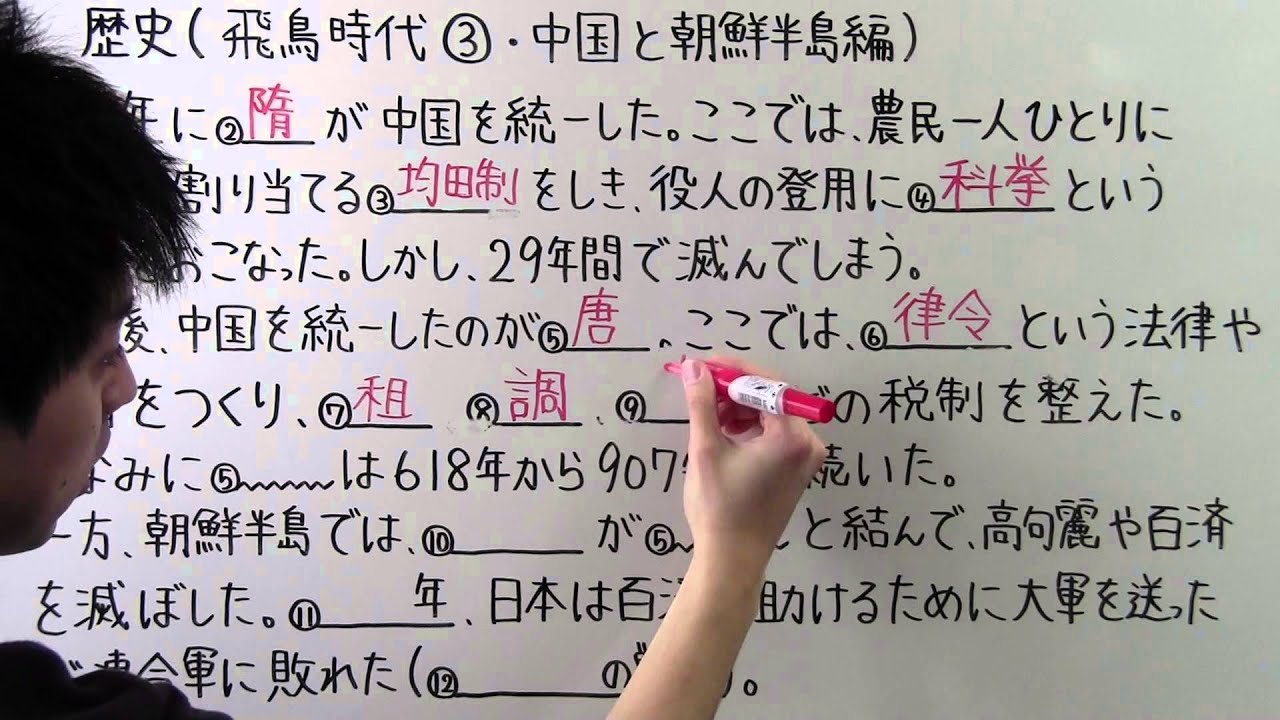 歴史(飛鳥時代③・中国と朝鮮半島編)
年に②隋が中国を統一した。ここでは、農民一人ひとりに
割り当てる③均田制をしき、役人の登用に④科挙という
おこなった。しかし、29年間で滅んでしまう。
後、中国を統一したのが⑤唐。ここでは、⑥律令という法律や
をつくり、⑦租、⑧調、⑨の税制を整えた。
なみに⑤は618年から907続いた。
一方、朝鮮半島では、⑩が⑤と結んで、高句麗や百済
を滅ぼした。⑪年、日本は百済助けるために大軍を送った
連合軍に敗れた(⑫の。